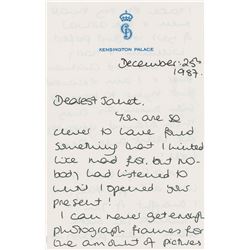 KENSINGTON PALACE
December. 25th
1987.
Dearest Janet.
You are so
clever to have found
something that I wanted
like mad for. but no-
body had listened to
until I opened your
present!
I can never get enough
photograph frames for
the amount of pictures